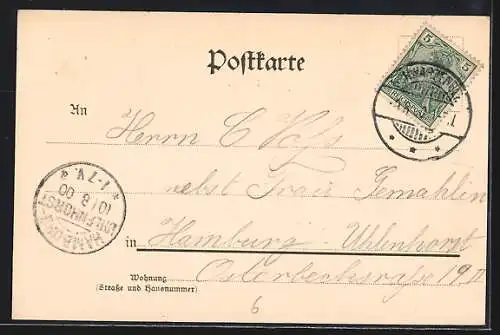 Postkarte
5 5
An
Herrn C
nebst Frau Gemahlin
in Hamburg-Uhlenhorst
Wohnung
(Straße und Hausnummer)
19 II
HAMBURG
UHLENHORST
10 8 00
* 1-7V.
6